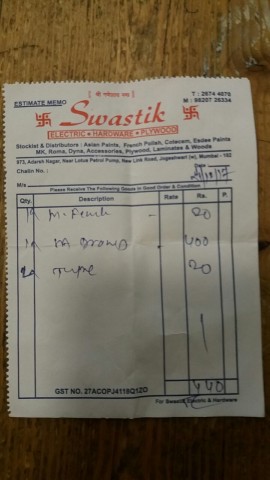 || श्री गणेशाय नमः ||
ESTIMATE MEMO
T : 2674 4076
M : 98207 26334
Swastik
ELECTRIC • HARDWARE • PLYWOOD
Stockist & Distributors : Asian Paints, French Polish, Colacem, Esdee Paints
MK, Roma, Dyna, Accessories, Plywood, Laminates & Woods
973, Adarsh Nagar, Near Lotus Petrol Pump, New Link Road, Jogeshwari (w), Mumbai - 102
Challn No. :
Date
M/s
Please Receive The Following Goods In Good Order & Condition
Qty. Description Rate Rs. P.
20
400
20
440
GST NO. 27ACOPJ4118Q1ZO
For Swastik Electric & Hardware